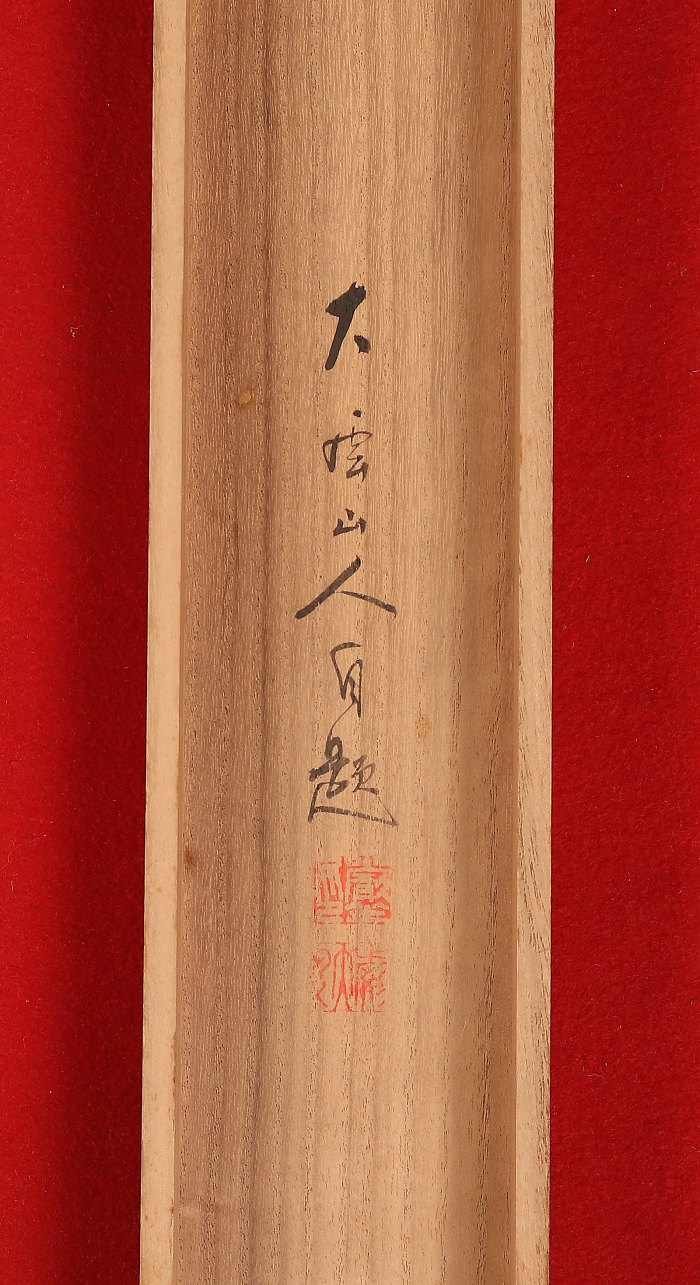 大雲山人自題